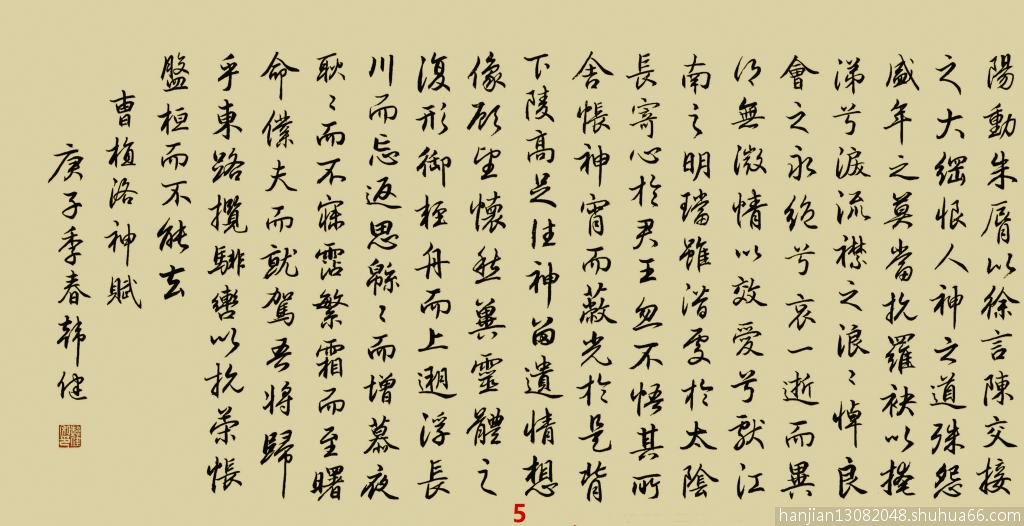 陽動朱脣以徐言陳交接
之大綱恨人神之道殊怨
盛年之莫當抗羅袂以掩
涕兮淚流襟之浪〻悼良
會之永絕兮哀一逝而異
鄉無微情以效愛兮獻江
南之明璫雖潛處於太陰
長寄心於君王忽不悟其所
舍悵神宵而蔽光於是背
下陵高足往神留遺情想
像顧望懷愁冀靈體之
復形御輕舟而上遡浮長
川而忘返思緜〻而增慕夜
耿〻而不寐霑繁霜而至曙
命僕夫而就駕吾將歸
乎東路攬騑轡以抗策悵
盤桓而不能去
曹植洛神賦
庚子季春韓健
5
hanjian13082048.shuhua66.com